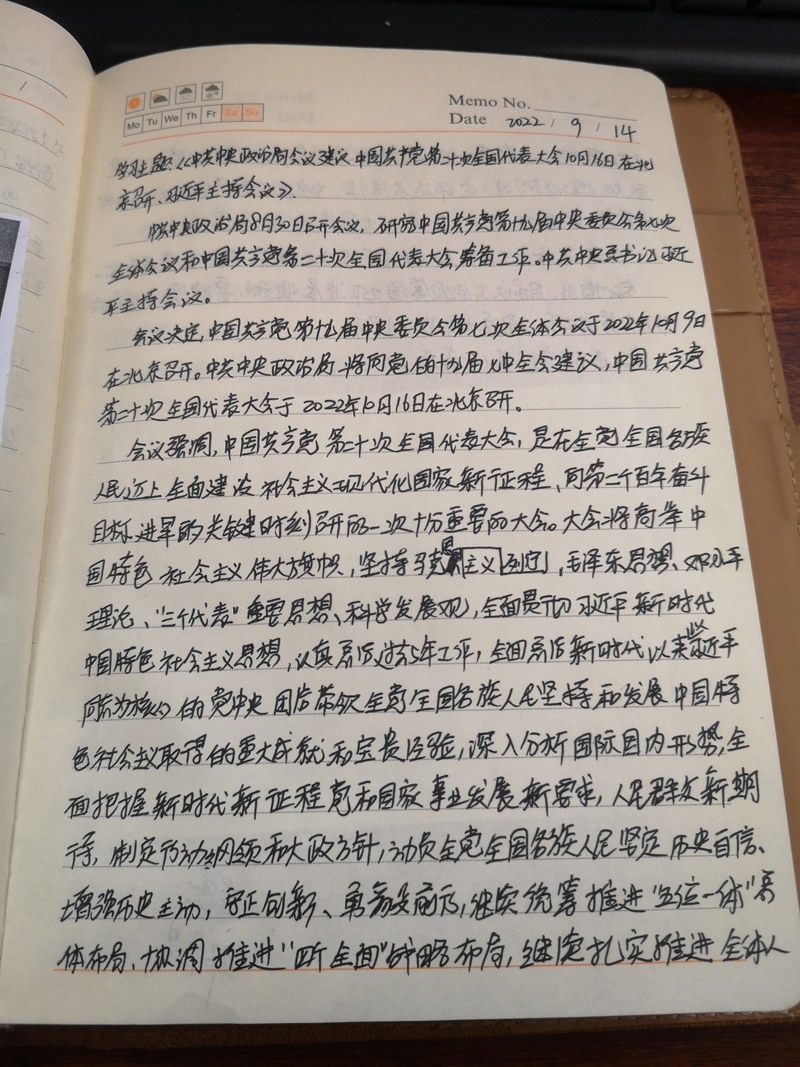 Mo Tu We Th Fr Sa Su
Memo No.
Date 2022 / 9 / 14
学习主题:《中共中央政治局会议建议 中国共产党第二十次全国代表大会10月16日在北
京召开、习近平主持会议》.
中共中央政治局8月30日召开会议,研究中国共产党第十九届中央委员会第七次
全体会议和中国共产党第二十次全国代表大会筹备工作。中共中央总书记习近
平主持会议。
会议决定,中国共产党第十九届中央委员会第七次全体会议于2022年10月9日
在北京召开。中共中央政治局将向党的十九届七中全会建议,中国共产党
第二十次全国代表大会于2022年10月16日在北京召开。
会议强调,中国共产党第二十次全国代表大会,是在全党全国各族
人民迈上全面建设社会主义现代化国家新征程、向第二个百年奋斗
目标进军的关键时刻召开的一次十分重要的大会。大会将高举中
国特色社会主义伟大旗帜,坚持马克思主义列宁,毛泽东思想、邓小平
理论、"三个代表"重要思想、科学发展观,全面贯彻习近平新时代
中国特色社会主义思想,认真总结过去5年工作,全面总结新时代以来以习近平
同志为核心的党中央团结带领全党全国各族人民坚持和发展中国特
色社会主义取得的重大成就和宝贵经验,深入分析国际国内形势,全
面把握新时代新征程党和国家事业发展新要求,人民群众新期
待,制定行动纲领和大政方针,动员全党全国各族人民坚定历史自信、
增强历史主动,守正创新、勇毅前行,继续统筹推进"五位一体"总
体布局、协调推进"四个全面"战略布局,继续扎实推进全体人